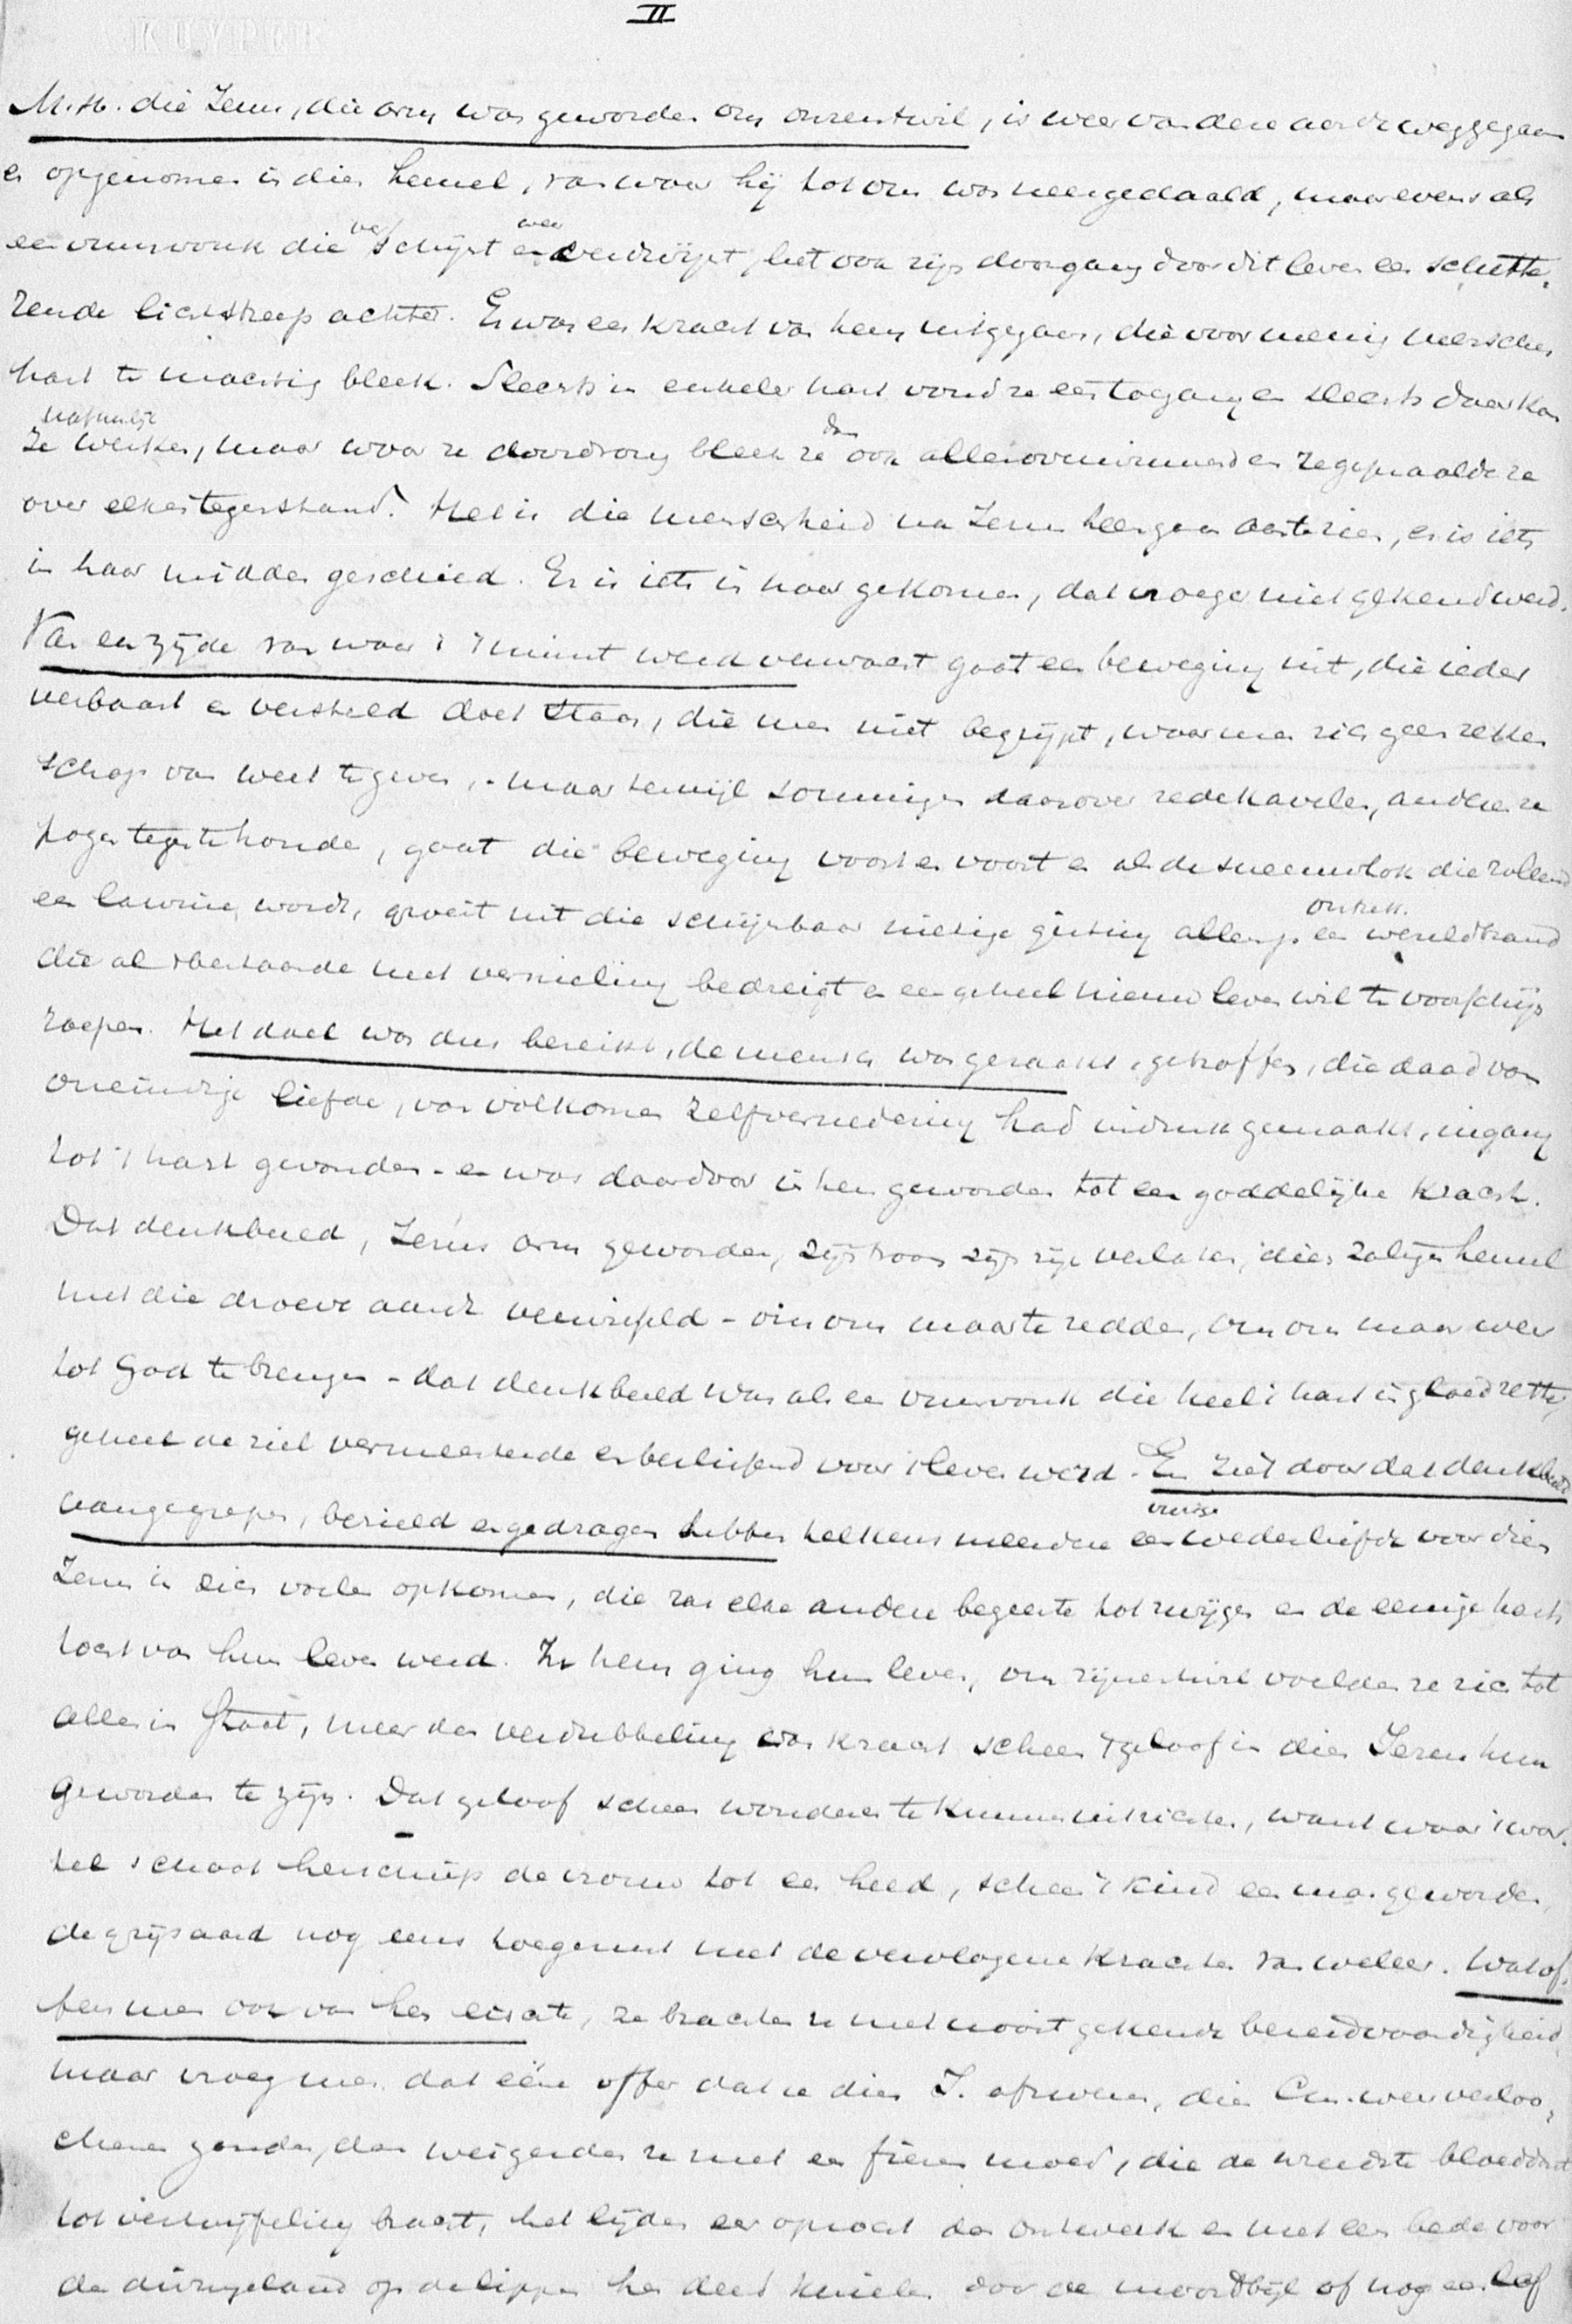 II
KUYPER
M.H. die Jezus, die arm was geworden om onzentwil, is weer van deze aarde weggegaan
en opgenomen in dien hemel, van waar hij tot ons was neergedaald, maar evenals
een vuurvonk die verschijnt en weer verdwijnt, liet ook zijn doorgang door dit leven een schitte-
rende lichtstreep achter. Er was een kracht van hem uitgegaan, die voor menig menschen
hart te machtig bleek. Slechts in enkeler hart vond ze een toegang en slechts daar kon
ze natuurlijk werken, maar waar ze doordrong bleek ze dan ook alles overwinnend en zegepraalde ze
over elken tegenstand. Het is die menschheid na Jezus heengaan aan te zien, er is iets
in haar midden geschied. Er is iets in haar gekomen, dat vroeger niet gekend werd.
Van een zijde van waar 't 't minst werd verwacht gaat een beweging uit, die ieder
verbaast en versteld doet staan, die men niet begrijpt, waar men zich geen reken
schap van weet te geven, - maar terwijl sommigen daarover redekavelen, anderen ze
pogen tegen te houden, gaat die beweging voort en voort en als de sneeuwvlok die rollend
een lawine wordt, groeit uit die schijnbaar nietige gisting allengs een wereldbrand
die al 't bestaande met vernieling bedreigt en een geheel nieuw leven wil te voorschijn
roepen. Het doel was dus bereikt, de mensch was geraakt, getroffen, die daad van
oneindige liefde, van volkomen zelfvernedering had indruk gemaakt, ingang
tot 't hart gevonden - en was daardoor in hen geworden tot een goddelijke kracht.
Dat denkbeeld, Jezus arm geworden, zijn troon zijn rijk verlaten, dien zaligen hemel
met die droeve aarde verwisseld - om ons maar te redden, om ons maar weer
tot God te brengen - dat denkbeeld was als een vuurvonk die heel 't hart in gloed zette,
geheel de ziel vermeesterde en beslissend voor 't leven werd. En ziet door dat denkbeeld
aangegrepen, bezield en gedragen hebben telkens meerdere een vurige wederliefde voor dien
Jezus in zich voelen opkomen, die ras elke andere begeerte tot zwijgen en de eenige harts
tocht van hun leven werd. In hem ging hun leven, om zijnentwil voelden ze zich tot
alles in staat, meer dan verdubbeling van kracht scheen 't geloof in dien Jezus hun
geworden te zijn. Dat geloof scheen wonderen te kunnen uitrichten, want waar 't wor-
tel schoot herschiep de vrouw tot een held, scheen 't kind een man geworden,
de grijsaard nog eens toegerust met de vervlogene krachten van weleer. Wat of-
fers men ook van hen eischte, ze brachten ze met nooit gekende bereidvaardigheid,
maar vroeg men dat ééne offer dat ze dien J. afzweren, dien Chr. weer verloo-
chenen zouden, dan weigerden ze met een fieren moed, die de wreedste bloeddorst
tot vertwijfeling bracht, het lijden eer opzocht dan ontweek en met een bede voor
de dwingeland op de lippen hen deed knielen voor de moordbijl of nog een lof